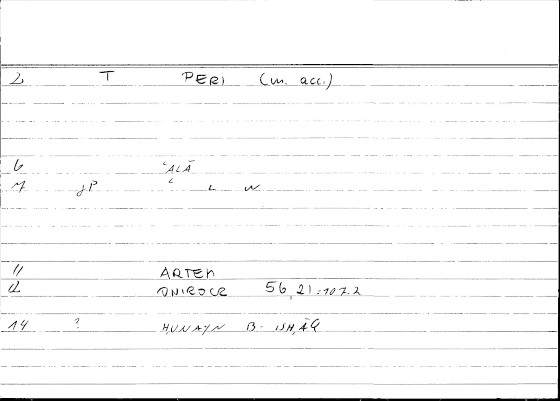 2 T PERI (m. acc.)
6 ʿALĀ
7 JP ʿ L W
11 ARTEM
12 ONIROCR 56,21:107.2
14 ? ḤUNAYN B- ISḤĀQ